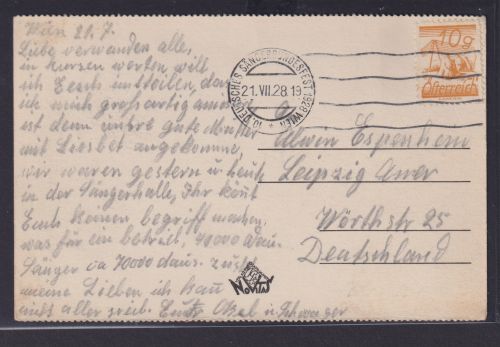 Wien 21.7.
Liebe verwanden alle,
in kurzen worten will
ich Euch mitteilen, das
ich mich großartig
ist denn unsre gute Mutter
mit Liesbet angekomme,
wir waren gestern u. heute
in der Sängerhalle, Ihr könt
Euch keinen begriff machen,
was für ein betrieb, 40000 daus.
Sänger ca 70000 daus.
meine Lieben ich kan
nicht aller
10. DEUTSCHES SÄNGERBUNDESFEST 1928 WIEN
21.VII.28.19
10g
Österreich
Alwin Espenhein
Leipzig
Wörthstr 25
Deutschland
NOVITAS